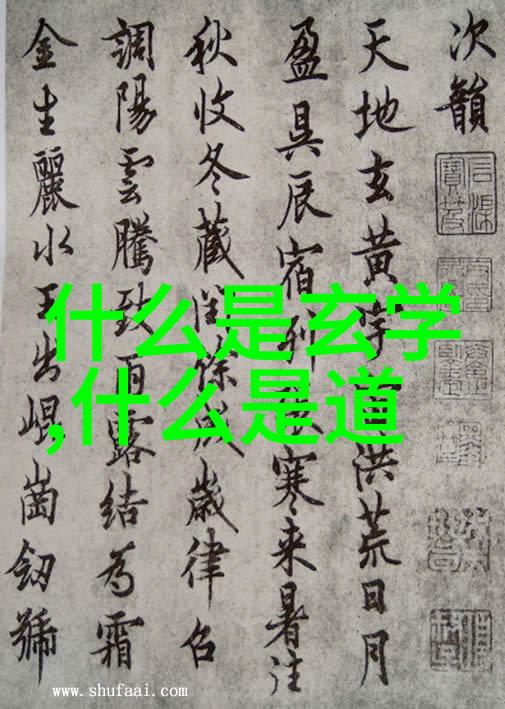 什么是玄学
,什么是道
次韻
天地玄黄宇洪荒日月
盈昃辰宿列寒来暑往
秋收冬藏閏餘成歲律吕
調陽雲騰致雨露結為霜
金生麗水玉出崐崗劒號
www.shufaai.com